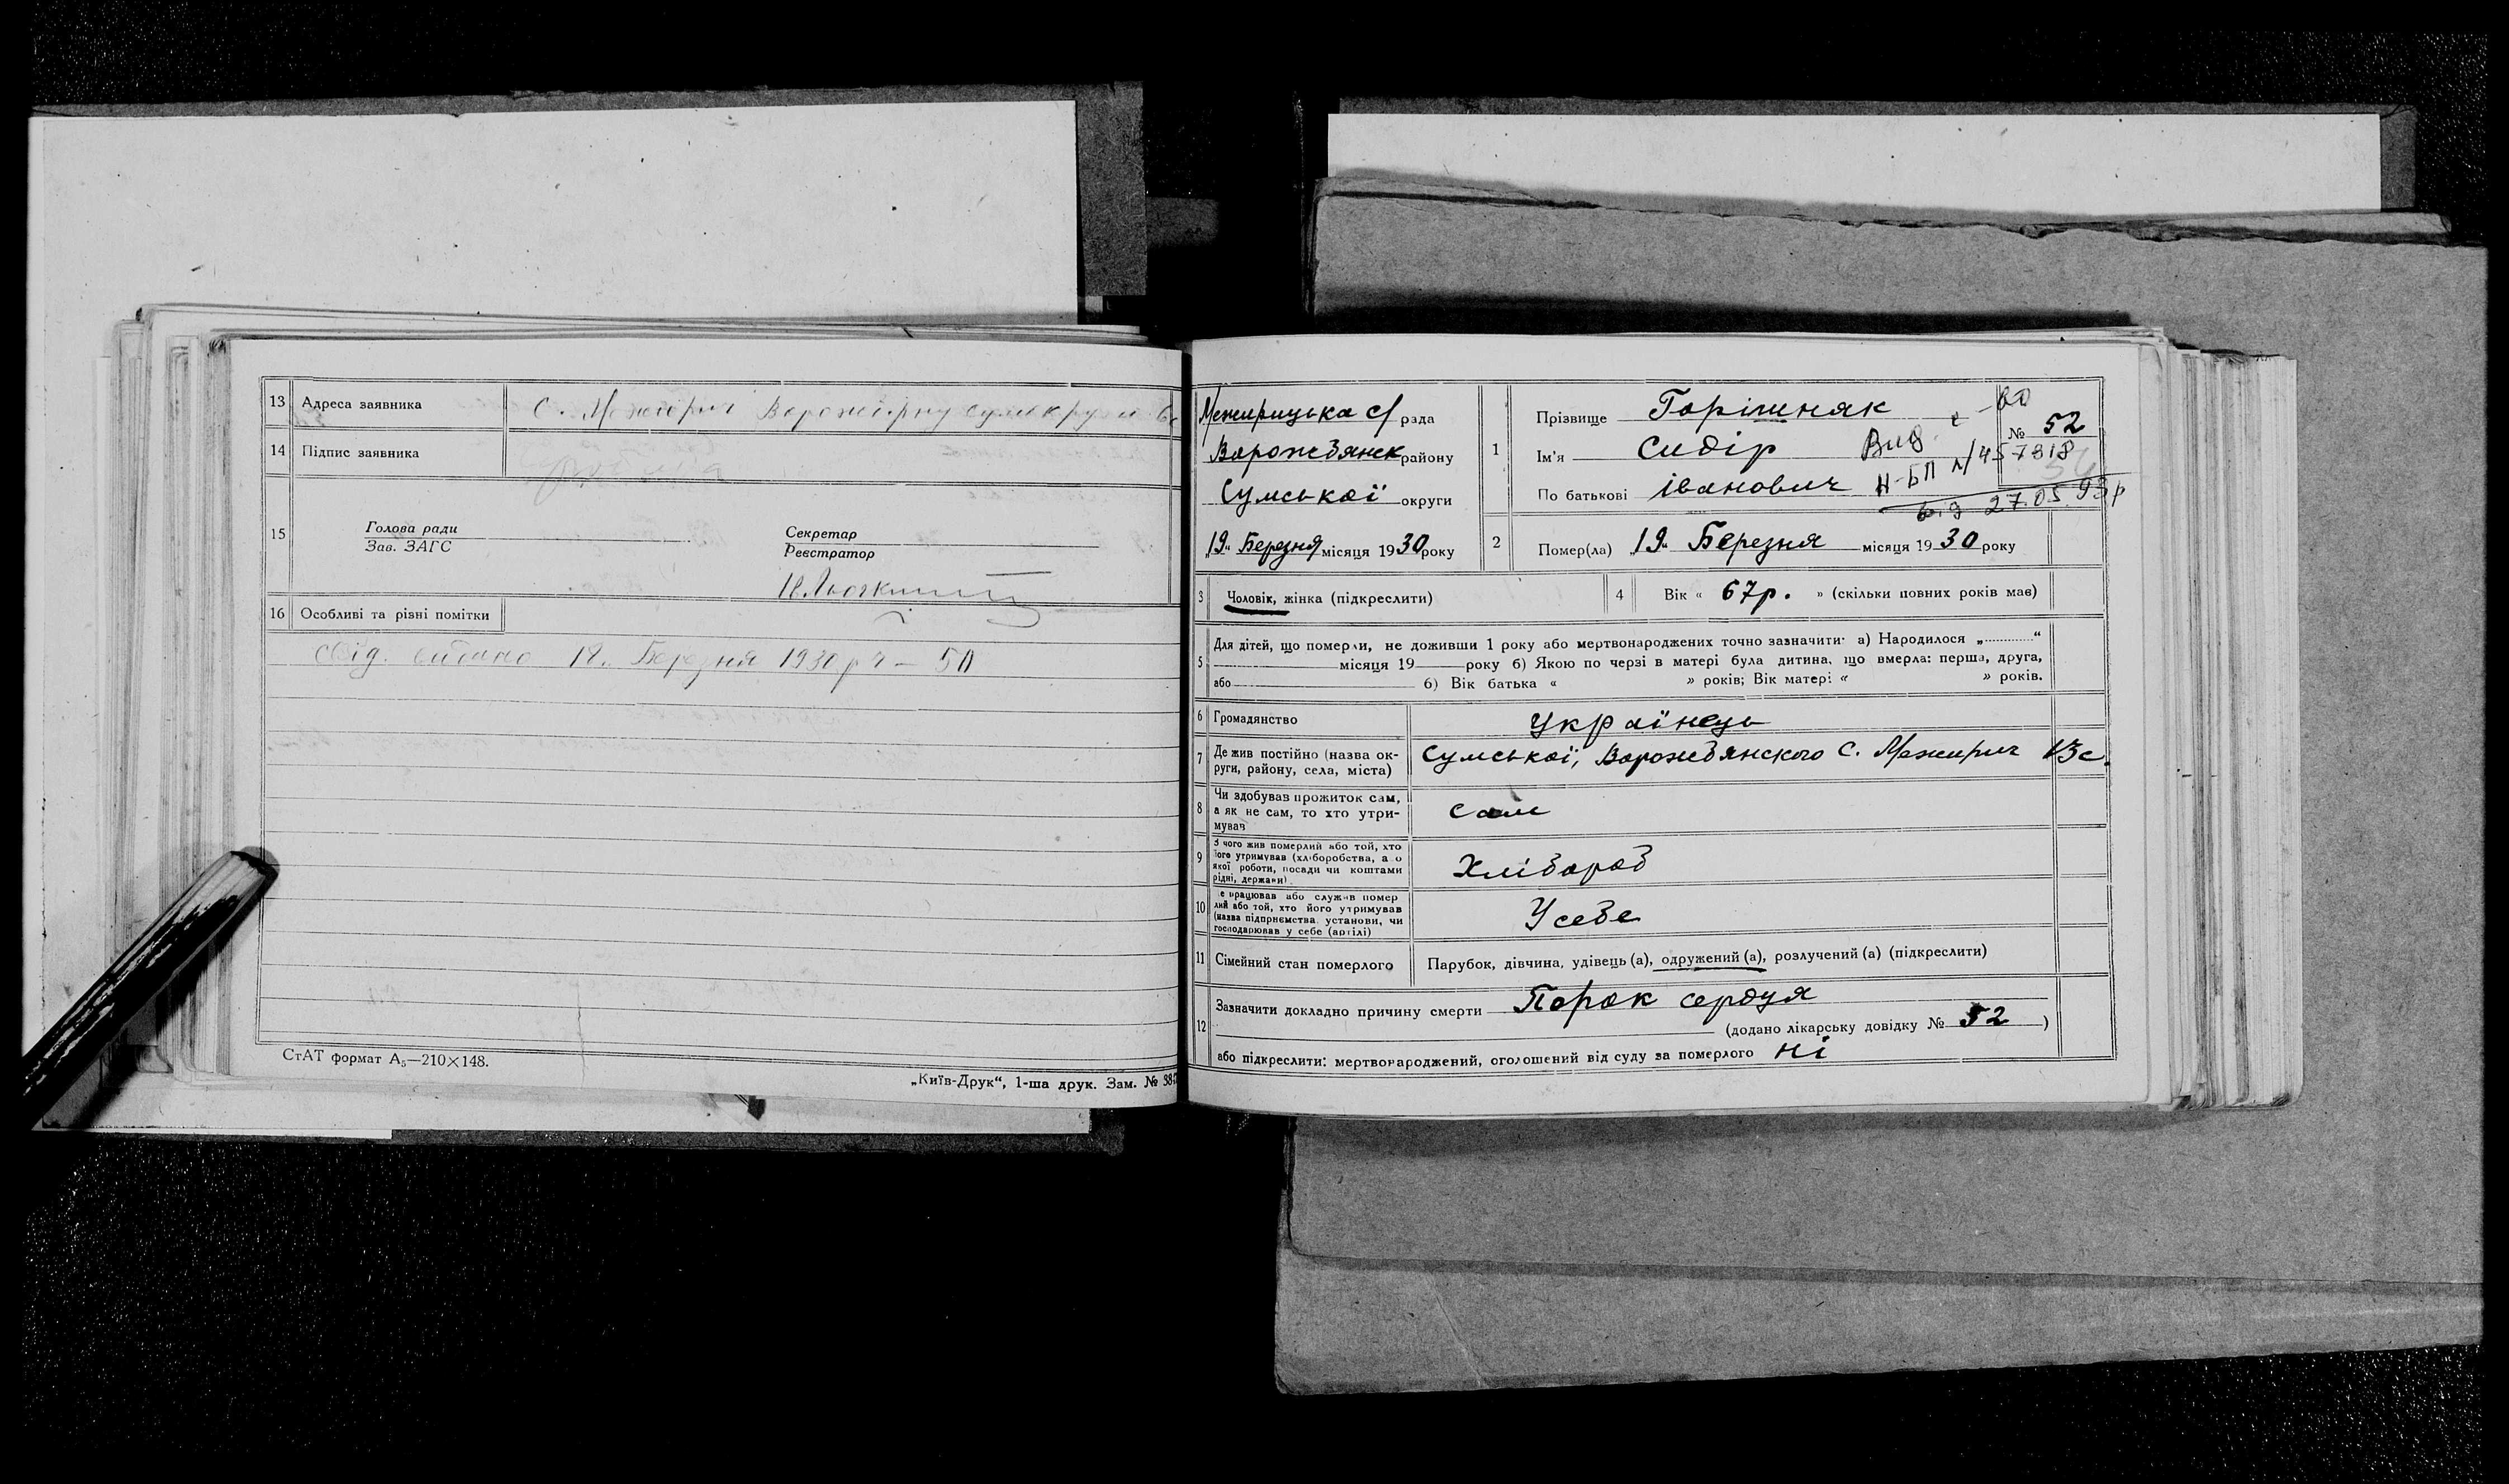 13 Адреса заявника С.
14 Підпис заявника
15 Голова ради
Зав. ЗАГС
Секретар
Реєстратор
16 Особливі та різні помітки
Свід. видано 18„ Березня 1930р
СтАТ формат А₅—210×148.
„Київ-Друк“, 1-ша друк. Зам. №
Межирицька с/ рада
Ворожбянск району
Сумської округи
„19„ Березня місяця 1930 року
1 Прізвище Горішняк
Ім'я Сидір
По батькові Іванович
№ 52
Вид.
І-БП №457818
від 27.05.93р
2 Помер(ла) „19„ Березня місяця 1930 року
3 Чоловік, жінка (підкреслити)
4 Вік « 67р. » (скільки повних років мав)
5 Для дітей, що померли, не доживши 1 року або мертвонароджених точно зазначити: а) Народилося „ “
місяця 19 року б) Якою по черзі в матері була дитина, що вмерла: перша, друга,
або б) Вік батька « » років; Вік матері « » років.
6 Громадянство українець
7 Де жив постійно (назва ок-
руги, району, села, міста) Сумської, Ворожбянского С. Межирич
8 Чи здобував прожиток сам,
а як не сам, то хто утри-
мував сам
9 З чого жив померлий або той, хто
його утримував (хліборобства, або
якої роботи, посади чи коштами
рідні, держави) Хлібороб
10 Де працював або служив помер
лий або той, хто його утримував
(назва підприємства, установи, чи
господарював у себе (артілі) У себе
11 Сімейний стан померлого Парубок, дівчина, удівець (а), одружений (а), розлучений (а) (підкреслити)
12 Зазначити докладно причину смерти Порок сердця
(додано лікарську довідку № 52 )
або підкреслити: мертвонароджений, оголошений від суду за померлого ні